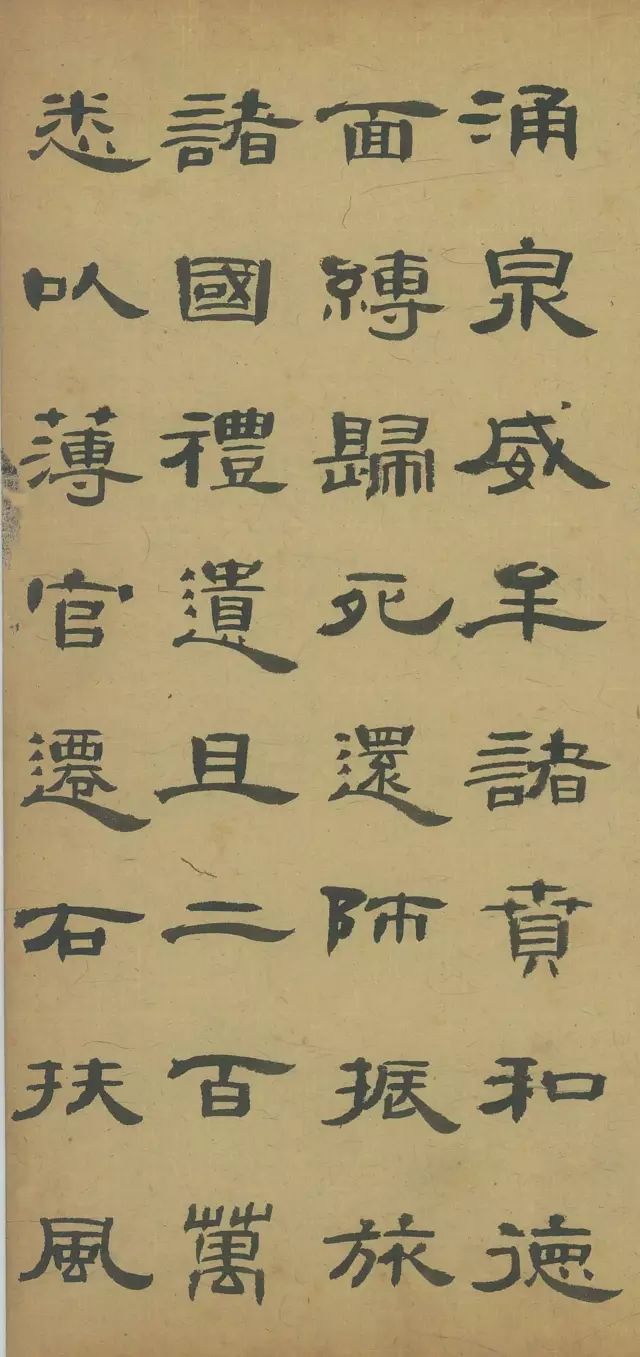 涌泉威牟諸賁和德
面縛歸死還師振旅
諸國禮遺且二百萬
悉以薄官遷右扶風